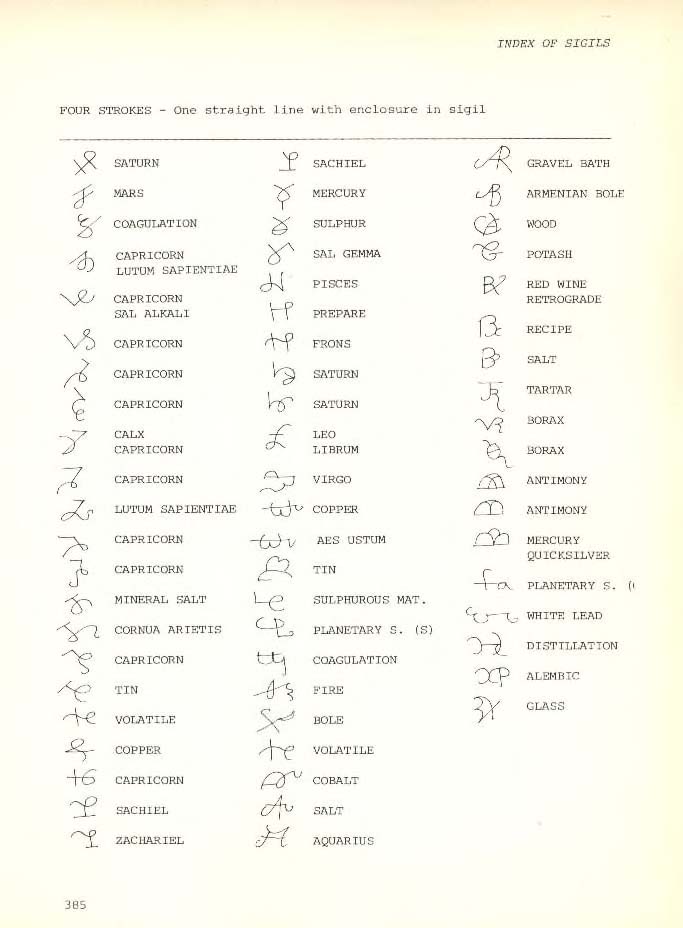 INDEX OF SIGILS
FOUR STROKES - One straight line with enclosure in sigil
SATURN
MARS
COAGULATION
CAPRICORN
LUTUM SAPIENTIAE
CAPRICORN
SAL ALKALI
CAPRICORN
CAPRICORN
CAPRICORN
CALX
CAPRICORN
CAPRICORN
LUTUM SAPIENTIAE
CAPRICORN
CAPRICORN
MINERAL SALT
CORNUA ARIETIS
CAPRICORN
TIN
VOLATILE
COPPER
CAPRICORN
SACHIEL
ZACHARIEL
SACHIEL
MERCURY
SULPHUR
SAL GEMMA
PISCES
PREPARE
FRONS
SATURN
SATURN
LEO
LIBRUM
VIRGO
COPPER
AES USTUM
TIN
SULPHUROUS MAT.
PLANETARY S. (S)
COAGULATION
FIRE
BOLE
VOLATILE
COBALT
SALT
AQUARIUS
GRAVEL BATH
ARMENIAN BOLE
WOOD
POTASH
RED WINE
RETROGRADE
RECIPE
SALT
TARTAR
BORAX
BORAX
ANTIMONY
ANTIMONY
MERCURY
QUICKSILVER
PLANETARY S.
WHITE LEAD
DISTILLATION
ALEMBIC
GLASS
385